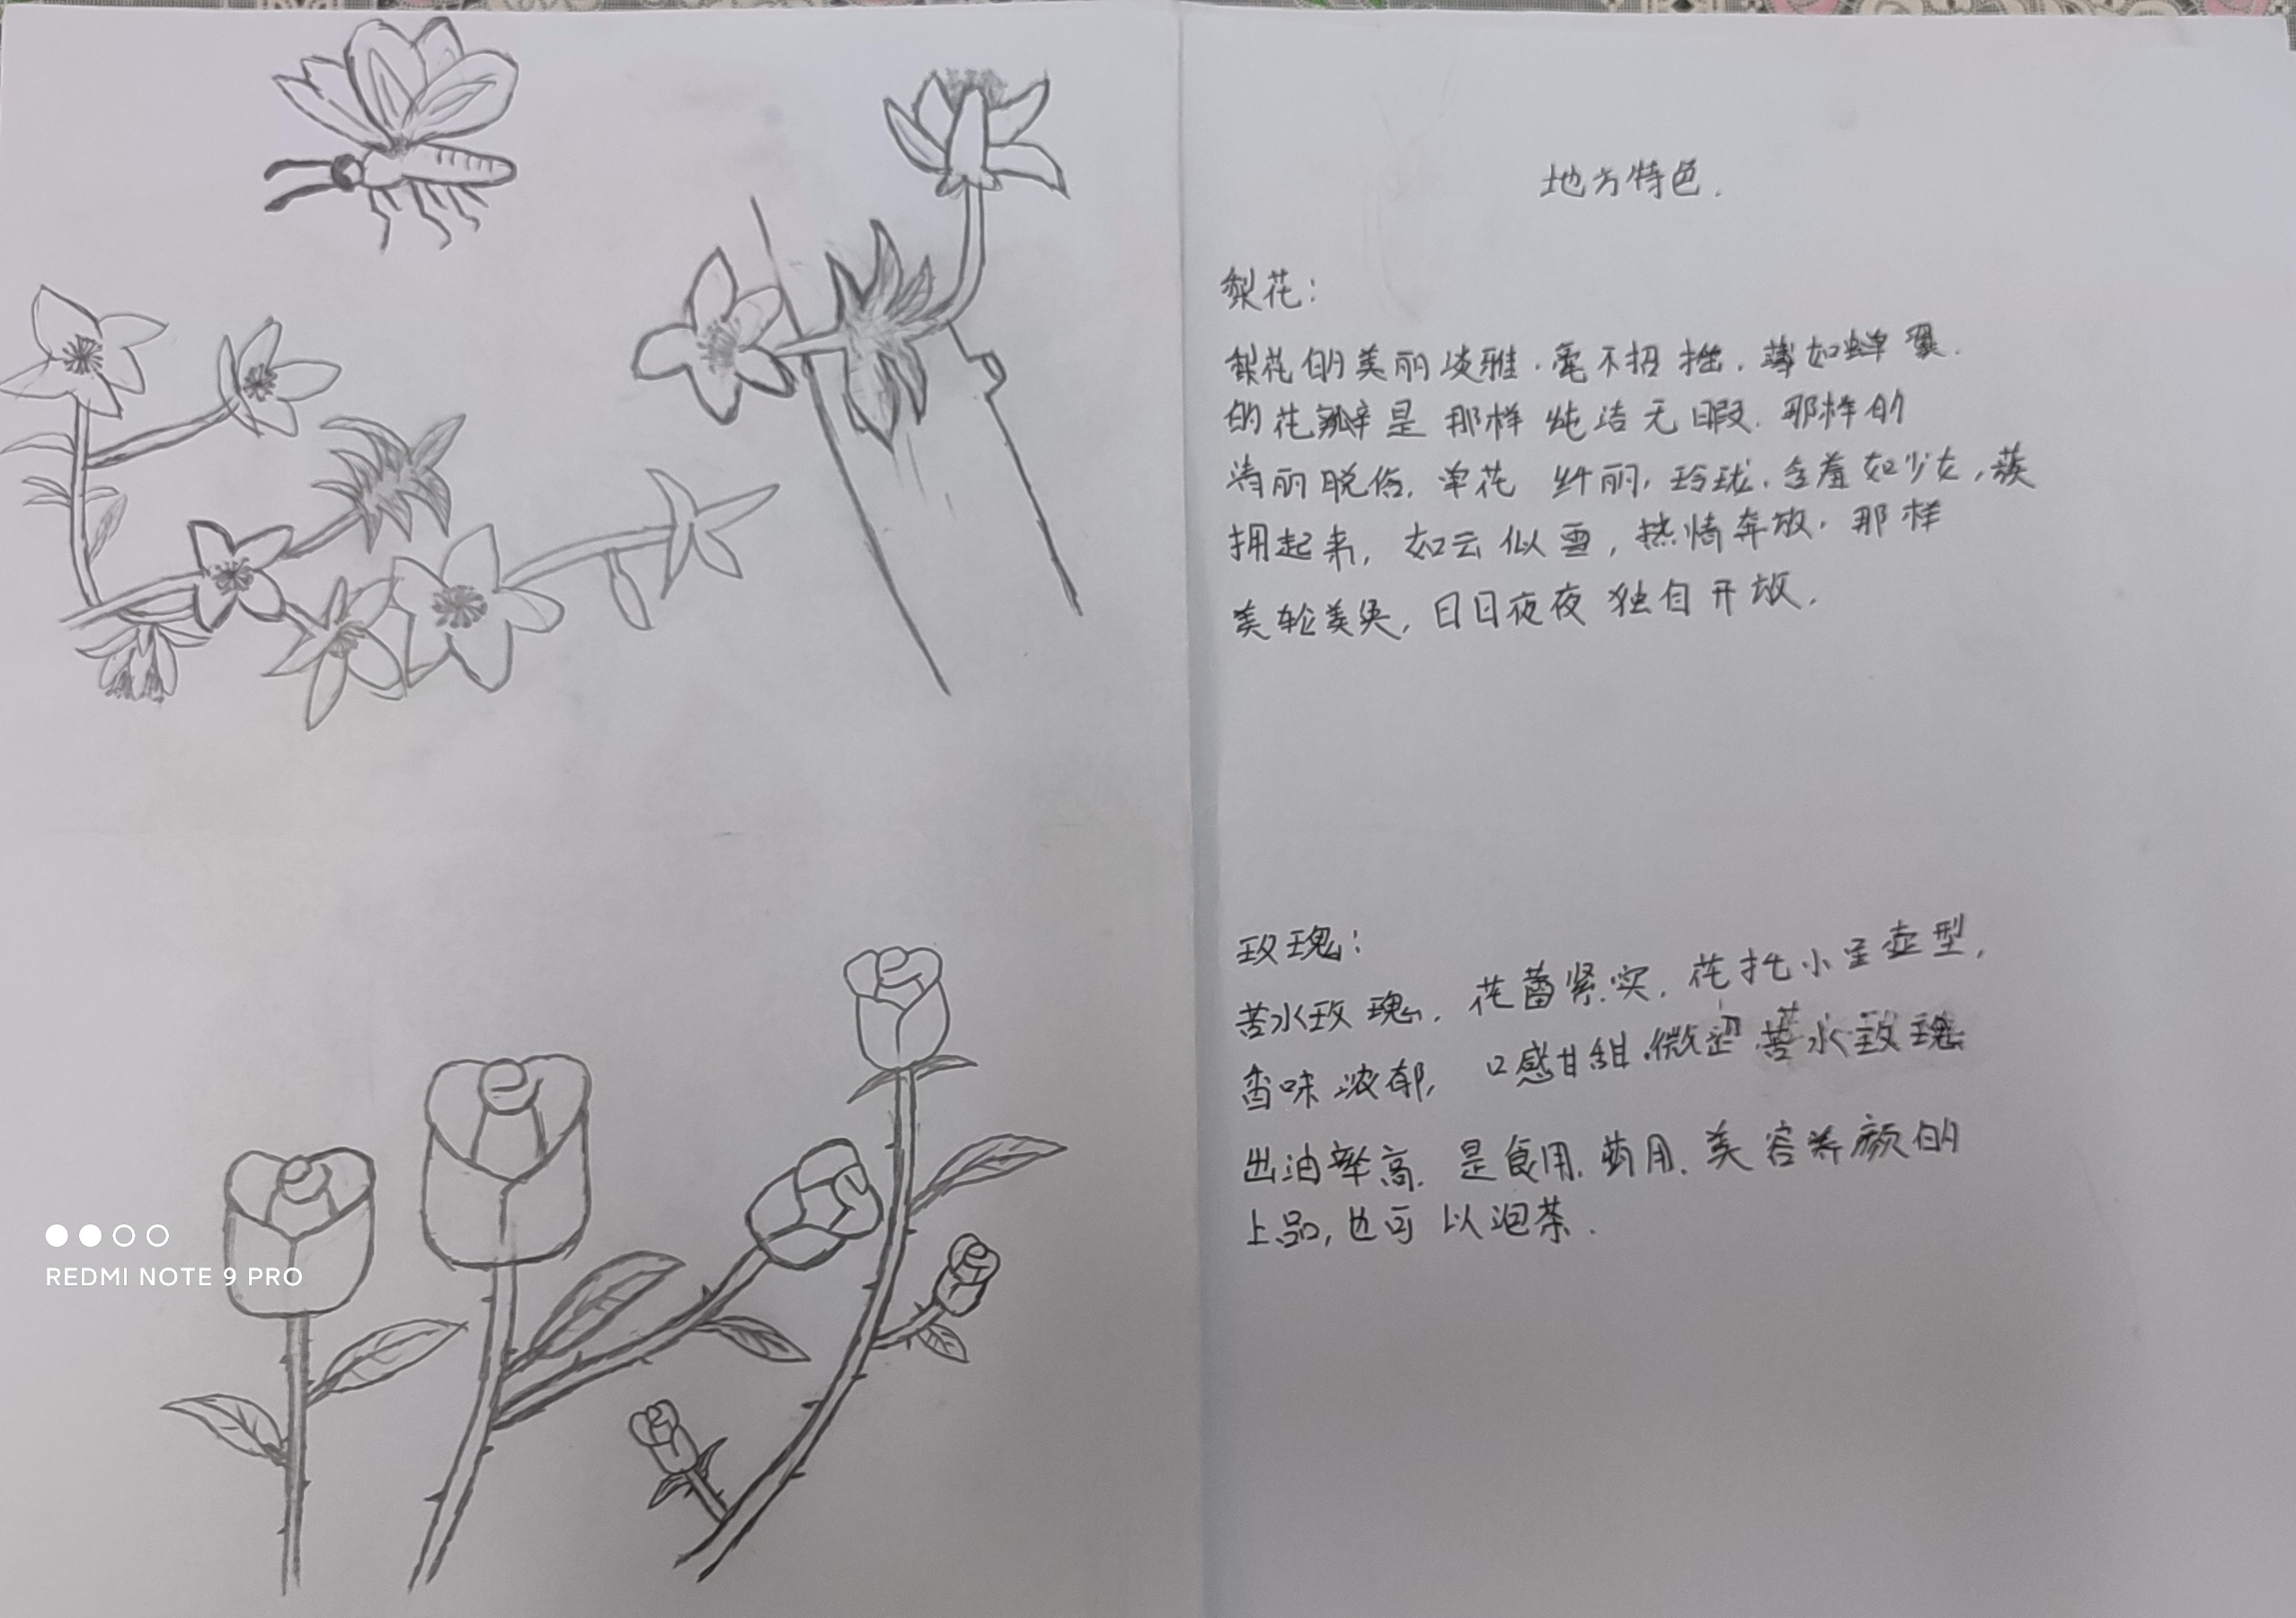 地方特色.
梨花:
梨花的美丽淡雅.毫不招摇.薄如蝉翼.
的花瓣是那样纯洁无暇.那样的
清丽脱俗.单花纤丽,玲珑.含羞如少女,蔟
拥起来,如云似雪,热情奔放.那样
美轮美奂,日日夜夜独自开放.
玫瑰:
苦水玫瑰.花蕾紧实.花托小呈壶型,
香味浓郁,口感甘甜.微涩.苦水玫瑰
出油率高.是食用.药用.美容养颜的
上品,也可以泡茶.
REDMI NOTE 9 PRO